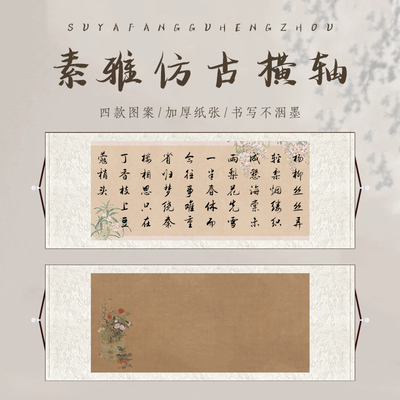 SUYAFANGGUHENGZHOU
素雅仿古横轴
四款图案/加厚纸张/书写不洇墨
杨柳丝丝弄
轻柔烟缕织
成愁海棠未
雨梨花先雪
一半春休而
今往事难重
省归梦绕秦
楼相思只在
丁香枝上豆
蔻梢头